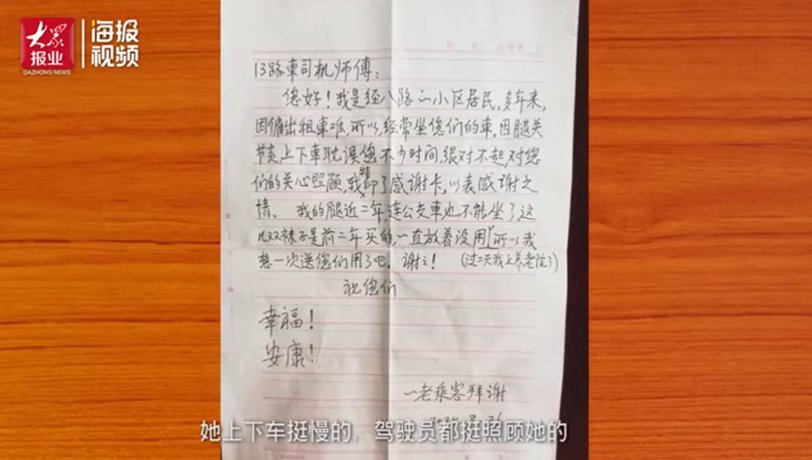 大众
报业
DAZHONG NEWS
海报
视频
年 月 日
13路車司机师傅：
您好！我是经八路一小区居民，多年来，
因僱出租車难，所以，经常坐您们的车，因腿关
节炎上下車耽误您不少时间，很对不起，对您
们的关心照顾，我特印了感谢卡，以表感谢之
情、我的腿近二年连公交車也不能坐了这
几双袜子是前二年买的，一直放着没用，所以我
想一次送您们用了吧，谢々！（过二天我上养老院了）
祝您们
幸福！
安康！
一老乘客拜谢
她上下车挺慢的，驾驶员都挺照顾她的